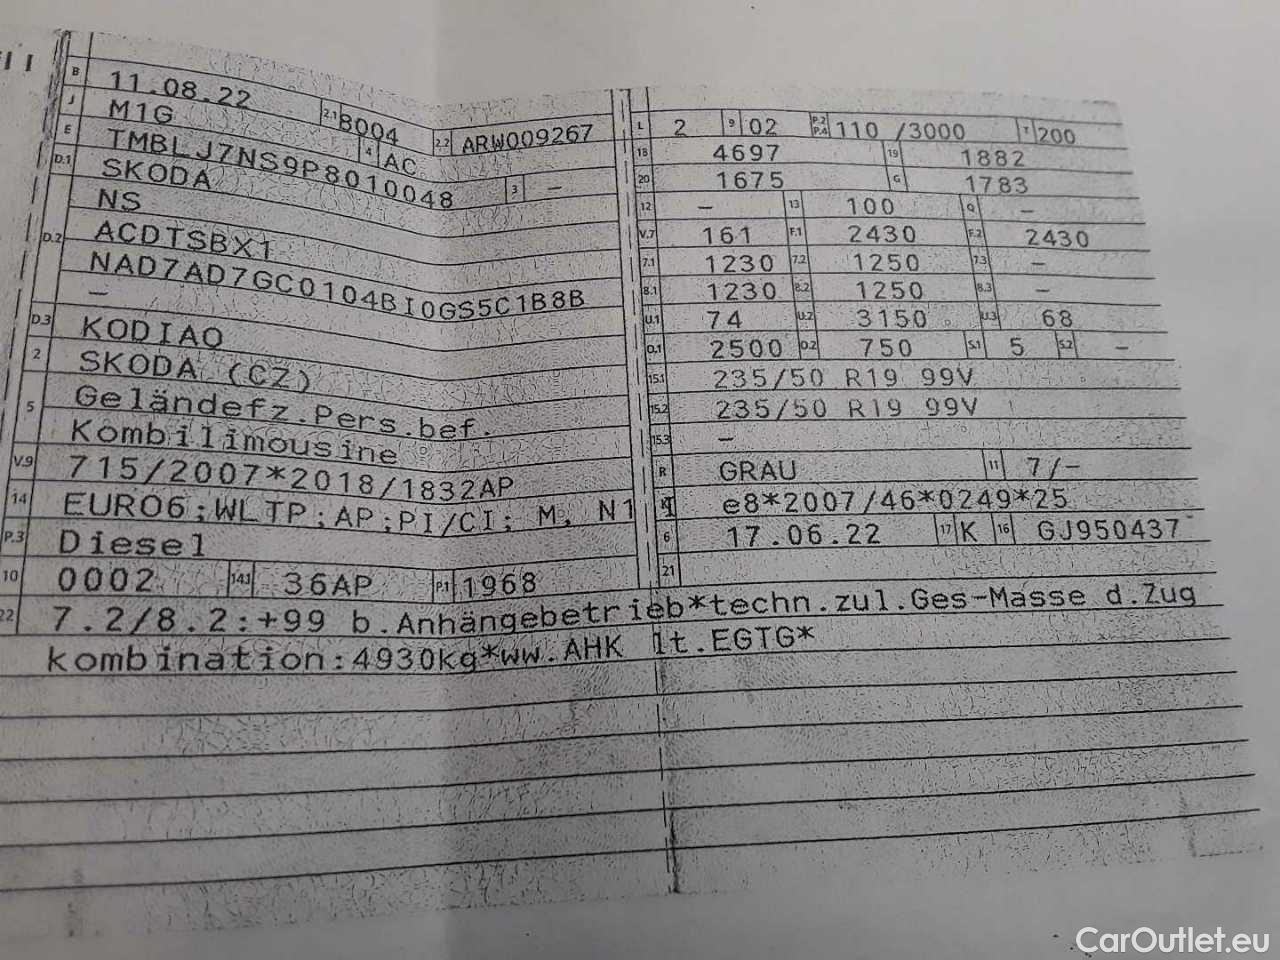 B 11.08.22 2.1 8004 2.2 ARW009267
J M1G 4 AC
E TMBLJ7NS9P8010048 3 –
D.1 SKODA
D.2 NS
ACDTSBX1
NAD7AD7GC0104BI0GS5C1B8B
–
D.3 KODIAQ
2 SKODA (CZ)
5 Geländefz.Pers.bef.
Kombilimousine
V.9 715/2007*2018/1832AP
14 EURO6;WLTP;AP;PI/CI; M, N1
P.3 Diesel
10 0002 14.1 36AP P.1 1968
L 2 9 02 P.2 P.4 110 /3000 T 200
18 4697 19 1882
20 1675 G 1783
12 – 13 100 Q –
V.7 161 F.1 2430 F.2 2430
7.1 1230 7.2 1250 7.3 –
8.1 1230 8.2 1250 8.3 –
U.1 74 U.2 3150 U.3 68
O.1 2500 O.2 750 S.1 5 S.2 –
15.1 235/50 R19 99V
15.2 235/50 R19 99V
15.3 –
R GRAU 11 7/–
K e8*2007/46*0249*25
6 17.06.22 17 K 16 GJ950437
21
22 7.2/8.2:+99 b.Anhängebetrieb*techn.zul.Ges-Masse d.Zug
kombination:4930kg*ww.AHK lt.EGTG*
CarOutlet.eu